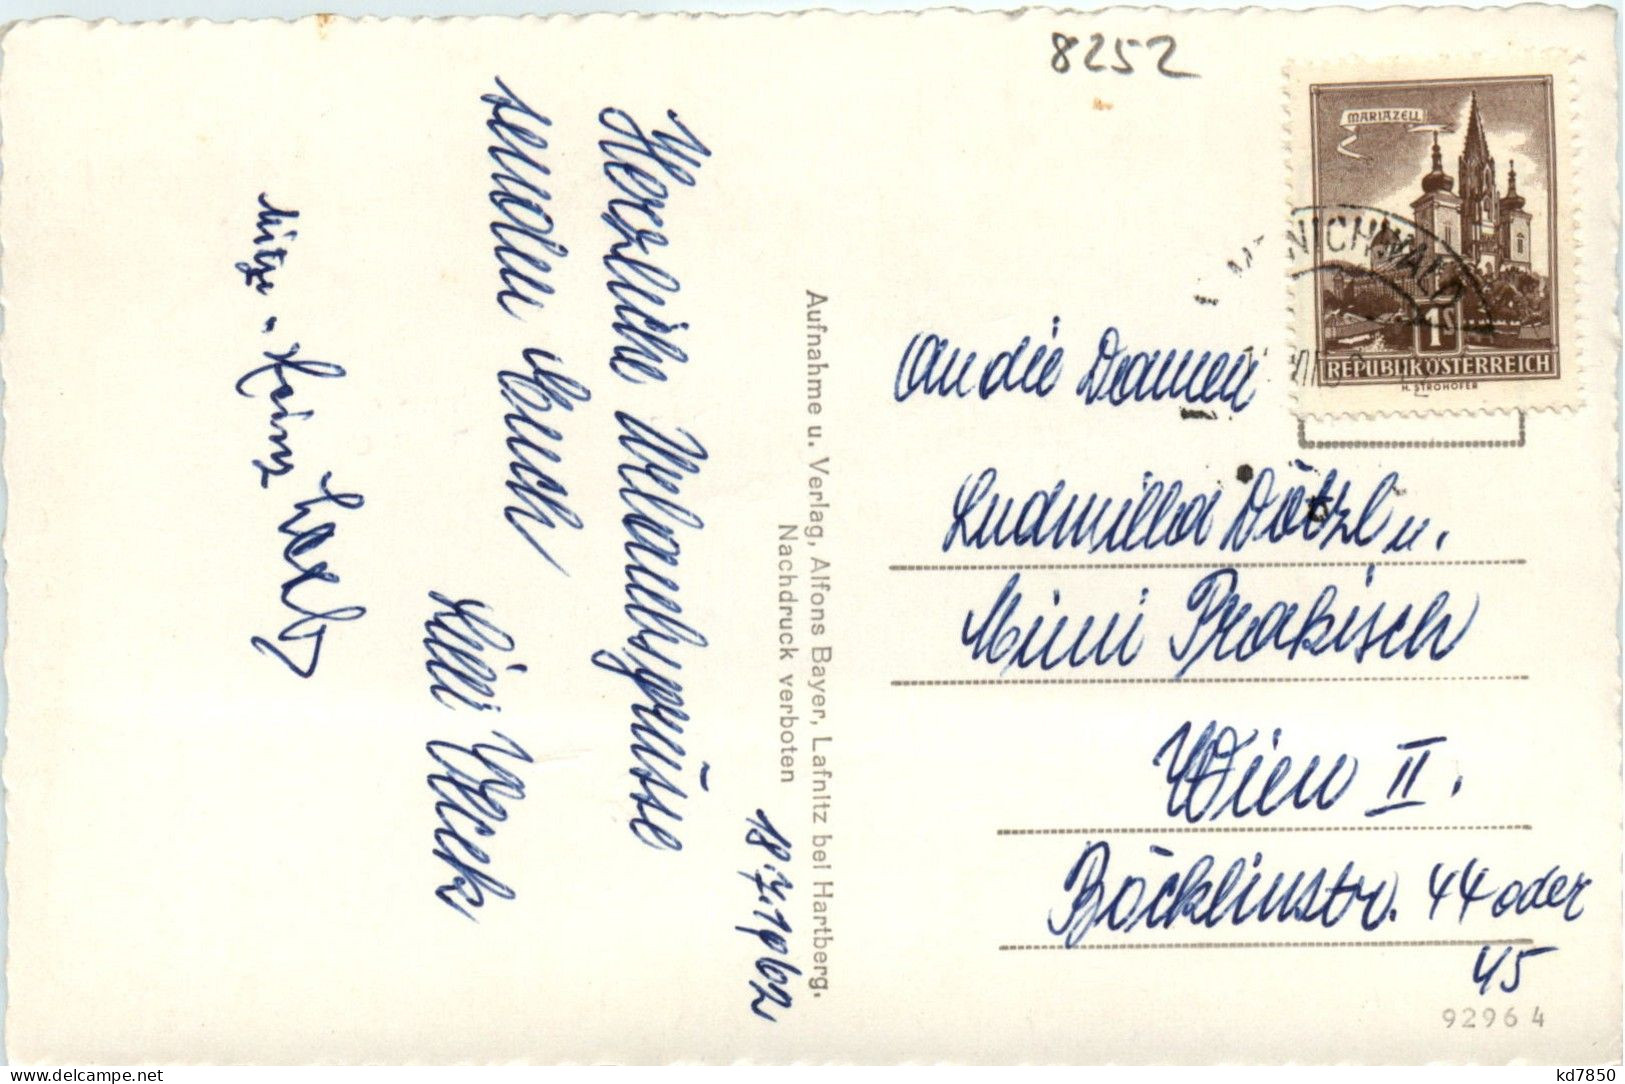 8252
MARIAZELL
1S
REPUBLIK ÖSTERREICH
H. STROHOFER
18.7.1962
Herzliche Urlaubsgrüsse
senden Euch
Lilli Weck
Aufnahme u. Verlag, Alfons Bayer, Lafnitz bei Hartberg.
Nachdruck verboten
An die Damen
Ludmilla Dötzl u.
Mimi Prakisch
Wien II.
Böcklinstr. 44 oder
45
92964
www.delcampe.net
kd7850